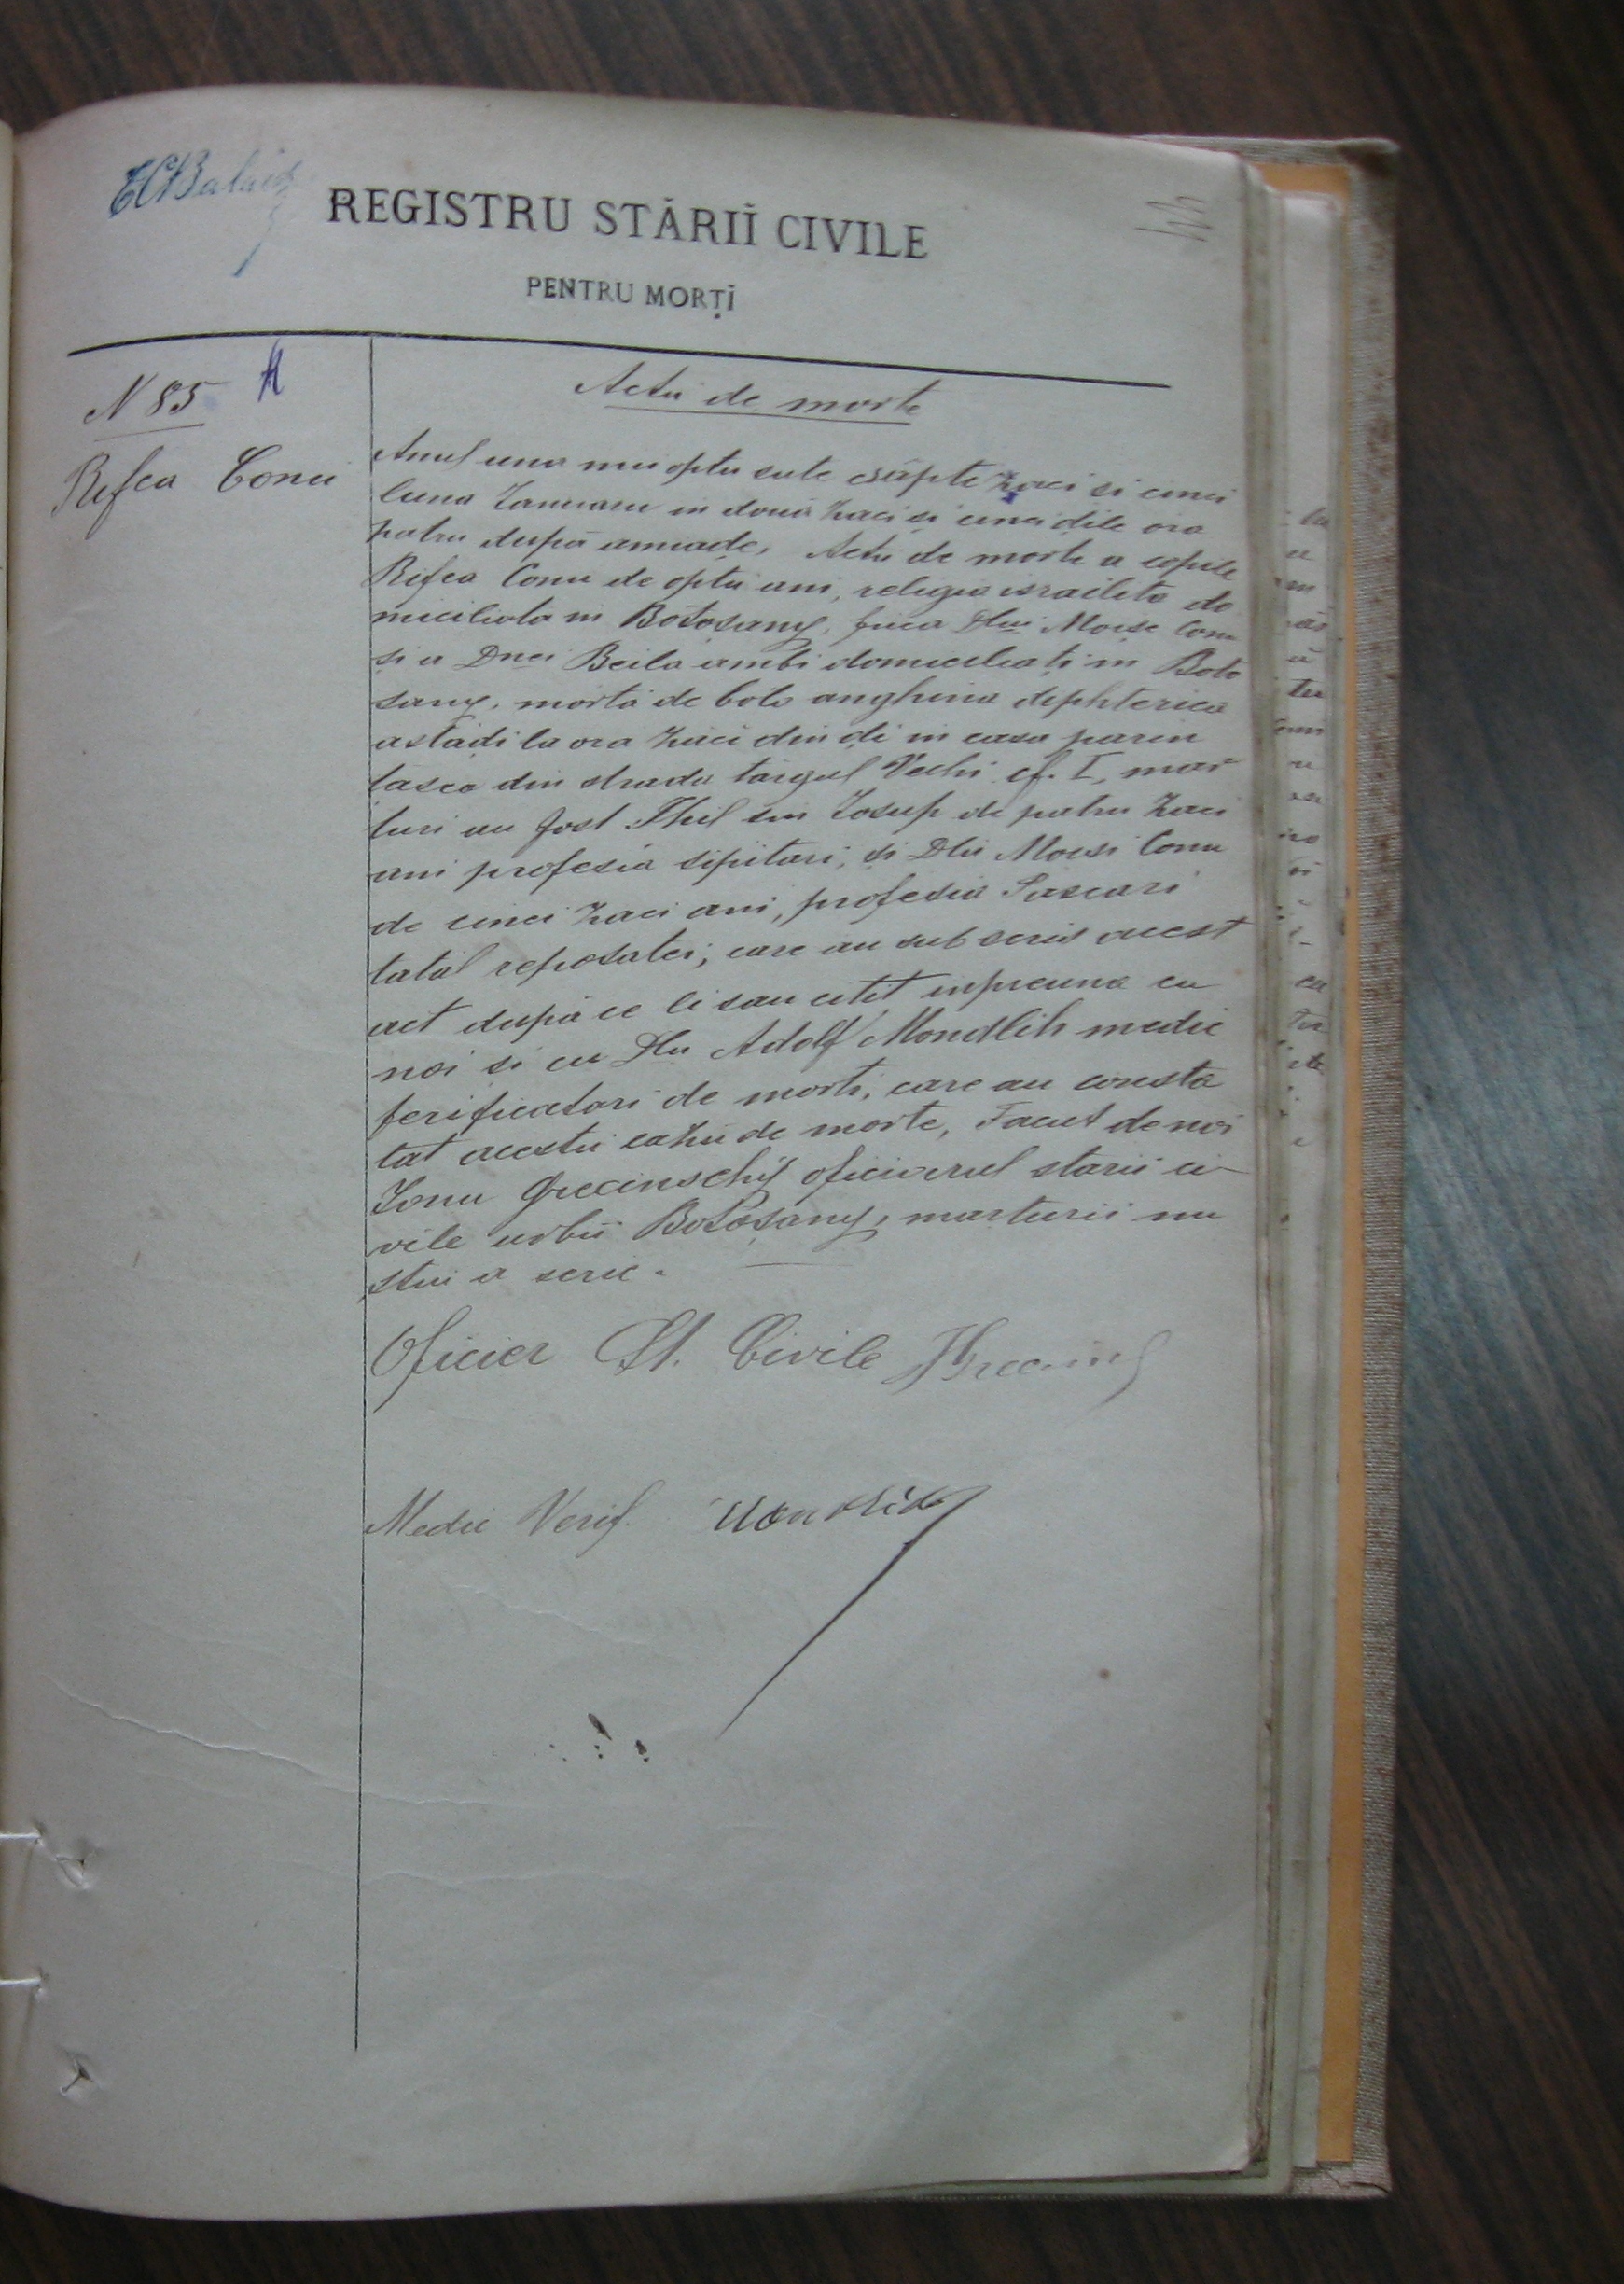 REGISTRU STĂRIĬ CIVILE
PENTRU MORȚĬ
N 85
Rifca Conu
Actu de morte
Anul una mii optu sute eséapte zeci si cinci
luna Ianuaru in doue zeci și cinci dile ora
patru după amiade, Actu de morte a copile
Rifca Conu de optu ani, religia israilita do
miciliata in Botoșany, fiica Dlui Moise Conu
și a Dnei Beila ambi domiciliați in Boto
sany, morta de bola anghina diphterica
astadi la ora zeci din di in casa parin
tasca din strada târgul Vechi cf. I, mar
turi au fost Thil sin Iosup de patru zeci
ani profesia sipitari, și Dlu Moisi Conu
de cinci zeci ani, profesia Pascari
tatal reposatei, care au subscris acest
act după ce li sau citit inpreuna cu
noi si cu Dlu Adolf Mondlih medic
ferificatori de morti, care au consta
tat acestu cazu de morte, Facut de noi
Ionu Grecinschi oficiarul starii ci
vile urbii Botoșany, marturii nu
stiu a scrie.
Oficier St. Civile
Medic Verif.